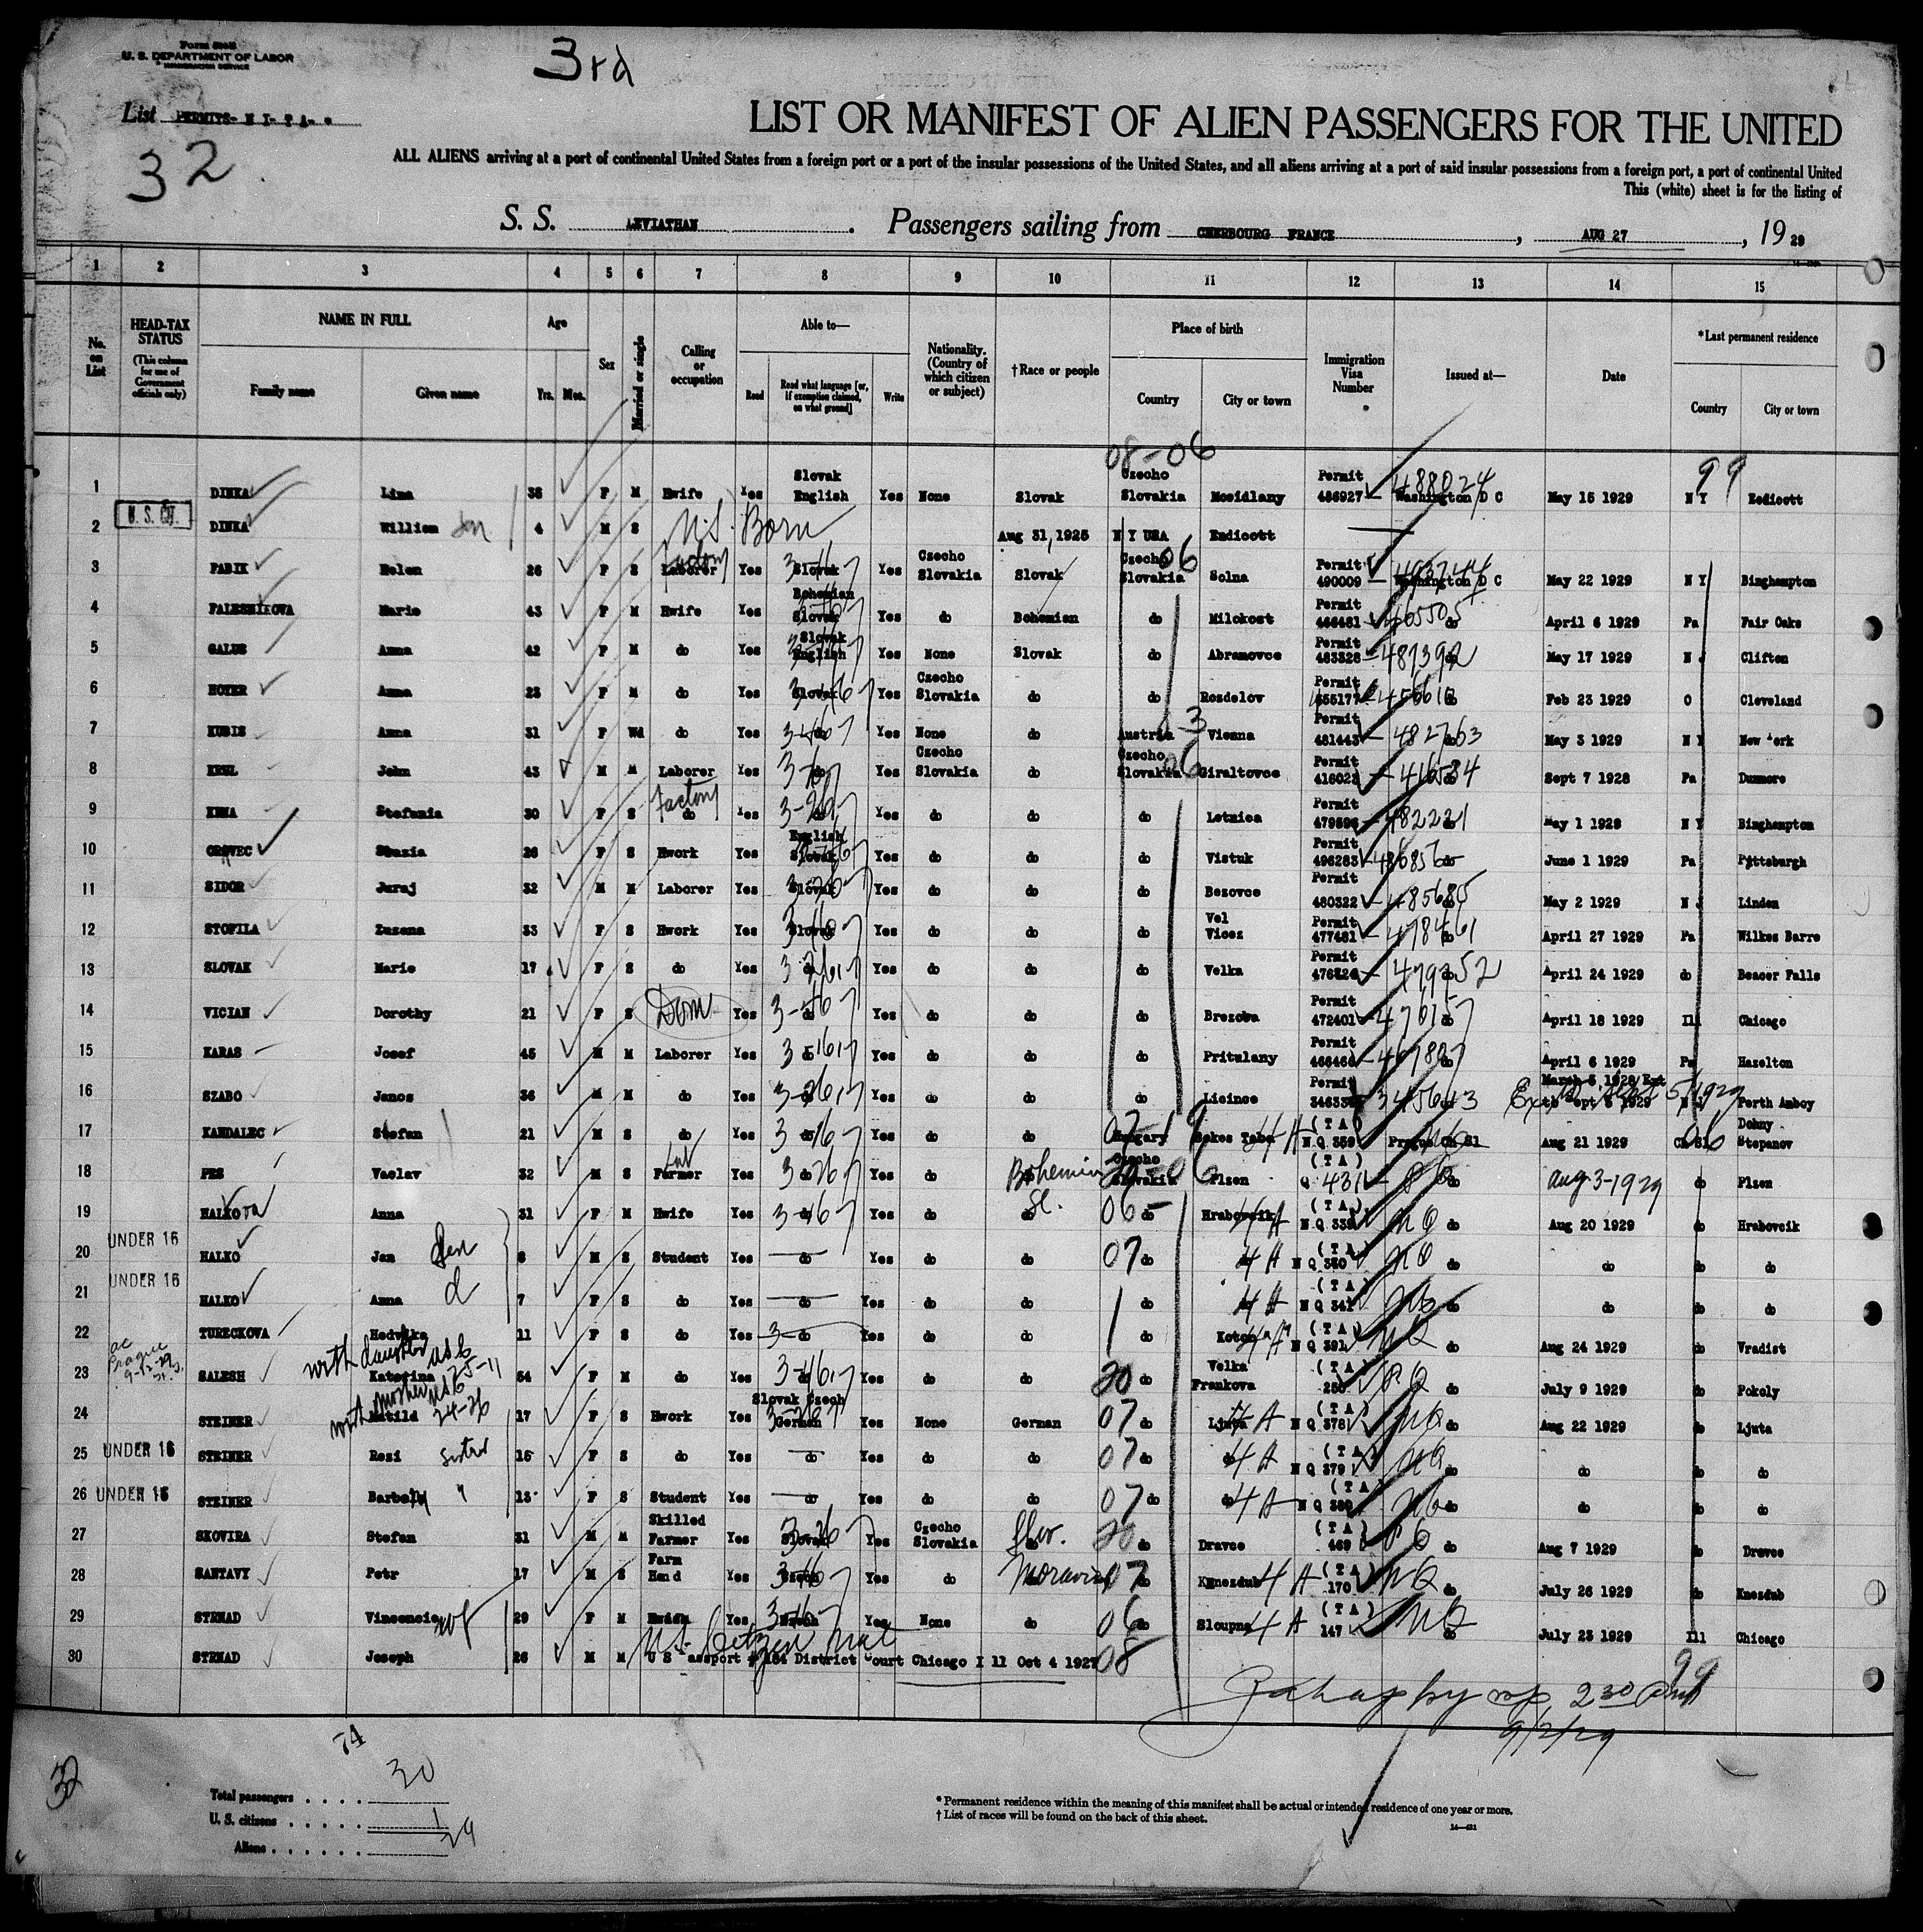 Form 500B
U. S. DEPARTMENT OF LABOR
IMMIGRATION SERVICE
3rd
List PERMITS- N I- T A-
32
LIST OR MANIFEST OF ALIEN PASSENGERS FOR THE UNITED
ALL ALIENS arriving at a port of continental United States from a foreign port or a port of the insular possessions of the United States, and all aliens arriving at a port of said insular possessions from a foreign port, a port of continental United
This (white) sheet is for the listing of
S. S. LEVIATHAN. Passengers sailing from CHERBOURG FRANCE, AUG 27, 1929
1 2 3 4 5 6 7 8 9 10 11 12 13 14 15
No. on List
HEAD-TAX STATUS
(This column for use of Government officials only)
NAME IN FULL
Family name Given name
Age
Yrs. Mos.
Sex
Married or single
Calling or occupation
Able to—
Read
Read what language [or, if exemption claimed, on what ground]
Write
Nationality. (Country of which citizen or subject)
†Race or people
Place of birth
Country City or town
Immigration Visa Number
Issued at—
Date
*Last permanent residence
Country City or town
08-06 99
1 DINKA Lina 36 F M Hwife Yes Slovak English Yes None Slovak Czecho Slovakia Permit 486927 488024 Washington D C May 15 1929 N Y Endicott
2 DINKA William son 4 M S U.S. Born Aug 31, 1925 N Y USA Endicott
3 PABIK Helen 26 F S Laborer factory Yes Slovak Yes Czecho Slovakia Slovak Czecho Slovakia 06 Solna Permit 490009 Washington D C May 22 1929 N Y Binghampton
4 PALESNIKOVA Marie 43 F M Hwife Yes Bohemian Slovak Yes do Bohemian do Milokost Permit 465505 do April 6 1929 Pa Fair Oaks
5 GALUS Anna 42 F M do Yes Slovak English Yes None Slovak do Abramovce Permit 483328 487392 do May 17 1929 N J Clifton
6 HOYER Anna 23 F M do Yes Slovak Yes Czecho Slovakia do do Rozdelov Permit 455177 do Feb 23 1929 O Cleveland
7 KUBIS Anna 31 F Wd do Yes do Yes None do Austria 3 Vienna Permit 481443 482763 May 3 1929 N Y New York
8 John 43 M M Laborer Yes do Yes Czecho Slovakia do Czecho Slovakia 06 Giraltovce Permit 416022 416534 Sept 7 1928 Pa Dunmore
9 Stefania 30 F S do factory Yes do Yes do do do Letnica Permit 479596 482221 May 1 1928 N Y Binghampton
10 F S Hwork 26 Yes English Slovak Yes do do do Vistuk Permit 496283 do June 1 1929 Pa Pittsburgh
11 SIDOR Juraj 32 M M Laborer Yes Slovak Yes do do do Bezovce Permit 480322 485685 May 2 1929 N J Linden
12 STOFILA Zuzana 33 F S Hwork Yes Slovak Yes do do do Vel Vicez Permit 477481 478461 April 27 1929 Pa Wilkes Barre
13 SLOVAK Marie 17 F S do Yes do Yes do do do Velka Permit April 24 1929 do Beacer Falls
14 VICIAN Dorothy 21 F S Dom Yes do Yes do do do Brezoba Permit 472401 do April 18 1929 Ill Chicago
15 KARAS Josef 45 M M Laborer Yes do Yes do do do Pritulany Permit 467807 April 6 1929 Pa Hazelton
16 SZABO Janos 36 M M do Yes do Yes do do do Licince Permit 345643 March 5, 1928/Ext to Sept 5 1929 N J Perth Amboy
17 KANDALEC Stefan 21 M S do Yes do Yes do do Hungary Bekes Taba (T A) N Q 359 Prague Ch Sl Aug 21 1929 Ch Sl 06 Dohny Stepanov
18 PES Vaclav 32 M S Farmer Yes do Yes do Bohemian Czecho Slovakia Plzen (T A) Q 431 do Aug 3-1929 do Plzen
19 HALKOva Anna 31 F M Hwife Yes do Yes do do Sl. 06 do Hrabovcik 4A (T A) N Q 339 NQ do Aug 20 1929 do Hrabovcik
20 UNDER 16 HALKO Jan Son 8 M S Student Yes do Yes do do 07 do 4A (T A) N Q 340 NQ do do do do
21 UNDER 16 HALKO Anna d 7 F S do Yes do Yes do do do 4A (T A) N Q 341 NQ do do do do
22 TURECKOVA Hedvika 11 F S do Yes do Yes do do do (T A) N Q 391 NQ do Aug 24 1929 do Vradist
23 SALESH with daughter Katerina 54 F M do Yes do Yes do do 20 do Velka Frankova (T A) 250 PQ do July 9 1929 do Pokoly
24 STEINER with mother Matild 17 F S Hwork Yes Slovak Czech German Yes None German 07 do Ljuta 4A (T A) N Q 378 NQ do Aug 22 1929 do Ljuta
25 UNDER 16 STEINER Rezi sister 15 F S do Yes do Yes do do 07 do do 4A (T A) N Q 379 NQ do do do do
26 UNDER 16 STEINER Barbely " 13 F S Student Yes do Yes do do 07 do do 4A (T A) N Q 380 NQ do do do do
27 SKOVIRA Stefan 31 M M Skilled Farmer Yes Slovak Yes Czecho Slovakia Slov. 20 do Dravce (T A) 469 PQ do Aug 7 1929 do Dravce
28 SANTAVY Petr 17 M S Farm Hand Yes Czech Yes do Moravian 07 do Knezdub 4A (T A) 170 NQ do July 26 1929 do Knezdub
29 STRNAD Vincencie wf 29 F M Hwife Yes Czech Yes None do 06 do Sloupna 4A (T A) 147 NQ do July 23 1929 Ill Chicago
30 STRNAD Joseph 26 M M U.S. Citizen Nat U S Passport District Court Chicago I ll Oct 4 1927 08 99
2 30 PM
9/2/29
74
32
Total passengers . . . . 30
U. S. citizens . . . . . 1
Aliens . . . . . . 29
* Permanent residence within the meaning of this manifest shall be actual or intended residence of one year or more.
† List of races will be found on the back of this sheet.